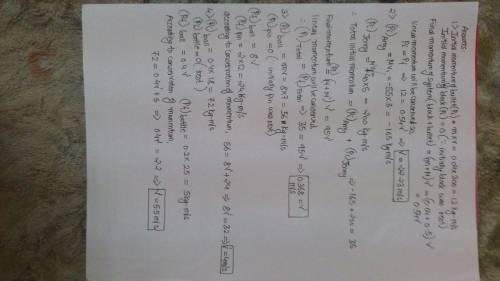 Answers
1) Initial momentum of bullet (Pi) = m×v = 0.04×300 = 12 kg-m/s
Initial momentum of block (Pi) = 0 (∵ initially block was rest)
Final momentum of System (block + bullet) = (m+M) V = (0.04+0.5) V
= 0.54V
Linear momentum will be conserved, so
Pi = Pf ⇒ 12 = 0.54V ⇒ V = 22.23 m/s
2) (Pi) Amy = MV1 = 55×3 = -165 kg m/s
(Pi) Jimmy = 40×5 = 200 kg m/s
∴ Total initial momentum = (Pi) Amy + (Pi) Jimmy ⇒ -165 + 200 = 35
Final momentum = (M+m) V = 95V
Linear momentum will be conserved
∴ (Pi) Total = (Pf) Total ⇒ 35 = 95V ⇒ 0.368 = V m/s
3) (Pi) ball = mv = 8×7 = 56 kg m/s
(Pi) pin = 0 (initially pin was rest)
(Pf) ball = 8V
(Pf) pin = 2×12 = 24 kg m/s
according to conservation of momentum, 56 = 8V + 24 ⇒ 8V = 32 ⇒ V = 4 m/s
4) (Pi) ball = 0.4×18 = 7.2 kg m/s
(Pi) bottle = 0 (rest)
(Pf) ball = 0.4V (Pf) bottle = 0.2×25 = 5 kg m/s
According to conservation of momentum,
7.2 = 0.4V + 5 ⇒ 0.4V = 2.2 ⇒ V = 5.5 m/s